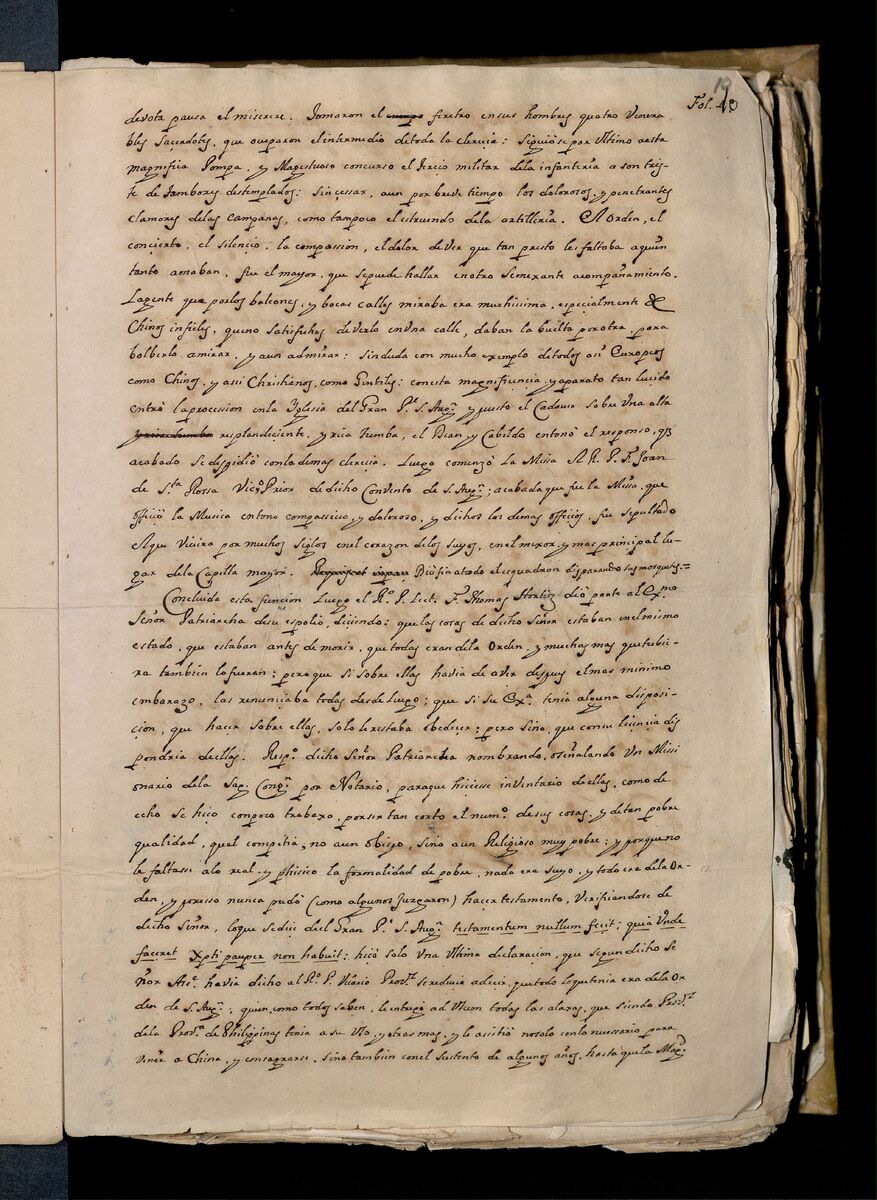 19
Fol. 40
devota pausa el miserere. Tomaron el cuerpo feretro en sus hombros quatro Venera
bles Sacerdotes, que ocuparon el intermedio de toda la clerecia: Siguiòse por Ultimo a esta
magnifica Pompa, y Magestuoso concurso el Tercio militar dela infanteria a son tris-
te de tambores destemplados: Sin cessar, aun por breve tiempo los dolorosos, y penetrantes
clamores delas Campanas, como tampoco el estruendo dela artilleria. El Orden, el
concierto, el silencio, la compassion, el dolor de Ver que tan presto les faltaba aquien
tanto amaban, fue el mayor, que sepuede hallar en otro Semexante acompañamiento.
La gente que porlos balcones, y bocas calles miraba era muchissima, especialmente de
Chinos infieles, que no Satisfechos deverlo en Una calle, daban la buelta por otra, para
bolberlo amirar, y aun admirar: Sinduda con mucho exemplo de todos assi Europeos
como Chinos, y assi Christianos, como Gentiles: con esta magnificencia, y aparato tan lucido
entrò la procession en la Yglesia del Gran Pe. S. Augn. y puesto el Cadaver Sobre Una alta
resplandeciente, y rica Tumba, el Dean, y Cabildo entonò el responso, q
acabado Se despidiò conla demas clerecia. Luego comenzò La Missa El R. P. F. Joan
de Sta. Rossa Vice Prior de dicho Convento de S. Augn.; acabada que fue la Missa, que
officiò la Musica en tono compassivo, y doloroso, y dichos los demas officios, fue sepultado
El que Vivira por muchos Siglos en el corazon delos Suyos, en el mexor, y mas principal lu-
gar dela Capilla mayor. Diò fin a todo el esquadron disparando sus mosquetes.=
Concluida esta funcion Luego el Ro. P. Lect. F. Thomas Hortiz diò parte al Exmo.
Señor Patriarcha desu espolio, diciendo: que las cosas de dicho Señor estaban en el mismo
estado, que estaban antes de morir, que todas eran dela Orden, y muchas mas que tubie-
ra tambien lo fueran: pero que si sobre ellas havia de aver despues el mas minimo
embarazo, las renunciaba todas desde luego; que si Su Exa. tenia alguna disposi-
cion, que hacer Sobre ellas, Solo le restaba obedecer; pero Sino, que con su licencia dis
pondria de ellas. Respo. dicho Señor Patriarcha nombrando, o señalando Un Missi
onario dela Sag. Congn. por Notario, paraque hiciesse inventario de ellas, como de
echo Se hiço con poco trabaxo, por ser tan corto el numo. de sus cosas, y de tan pobre
qualidad, qual competia, no aun obispo, Sino aun Religioso muy pobre: y porque no
le faltasse alo real, y phisico la formalidad de pobre, nada era Suyo, y todo era dela Or-
den, y por esso nunca pudò (como algunos Juzgaron) hacer testamento, Verificandose de
dicho Señor, loque Se dice del Gran Pe. S. Augn. testamentum nullum fecit; quia Unde
faceret Xpti pauper non habuit: hiço solo Una Ultima declaracion, que segun dicho Se
ñor havia dicho al Ro. P. Vicario Provl. Se reducia a decir, que todo loque tenia era dela Or
den de S. Augn.; quien como todos saben, le entregò ad Usum todas las alaxas, que siendo Provl.
dela Prova. de Philippinas tenia a Su Uso, y otras mas, y le assistiò no solo conlo necessario para
venir a China, y consagrarse, Sino tambien con el Sustento de algunos años, hasta que la Magd.